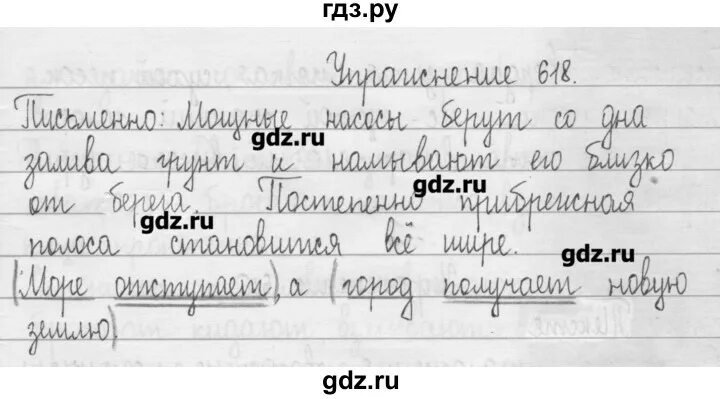 гдз.ру
Упражнение 618.
Письменно: Мощные насосы берут со дна
gdz.ru gdz.ru
залива грунт и намывают его близко
gdz.ru
от берега. Постепенно прибрежная
gdz.ru
полоса становится всё шире.
gdz.ru
(Море отступает), а (город получает новую
землю)
gdz.ru
gdz.ru